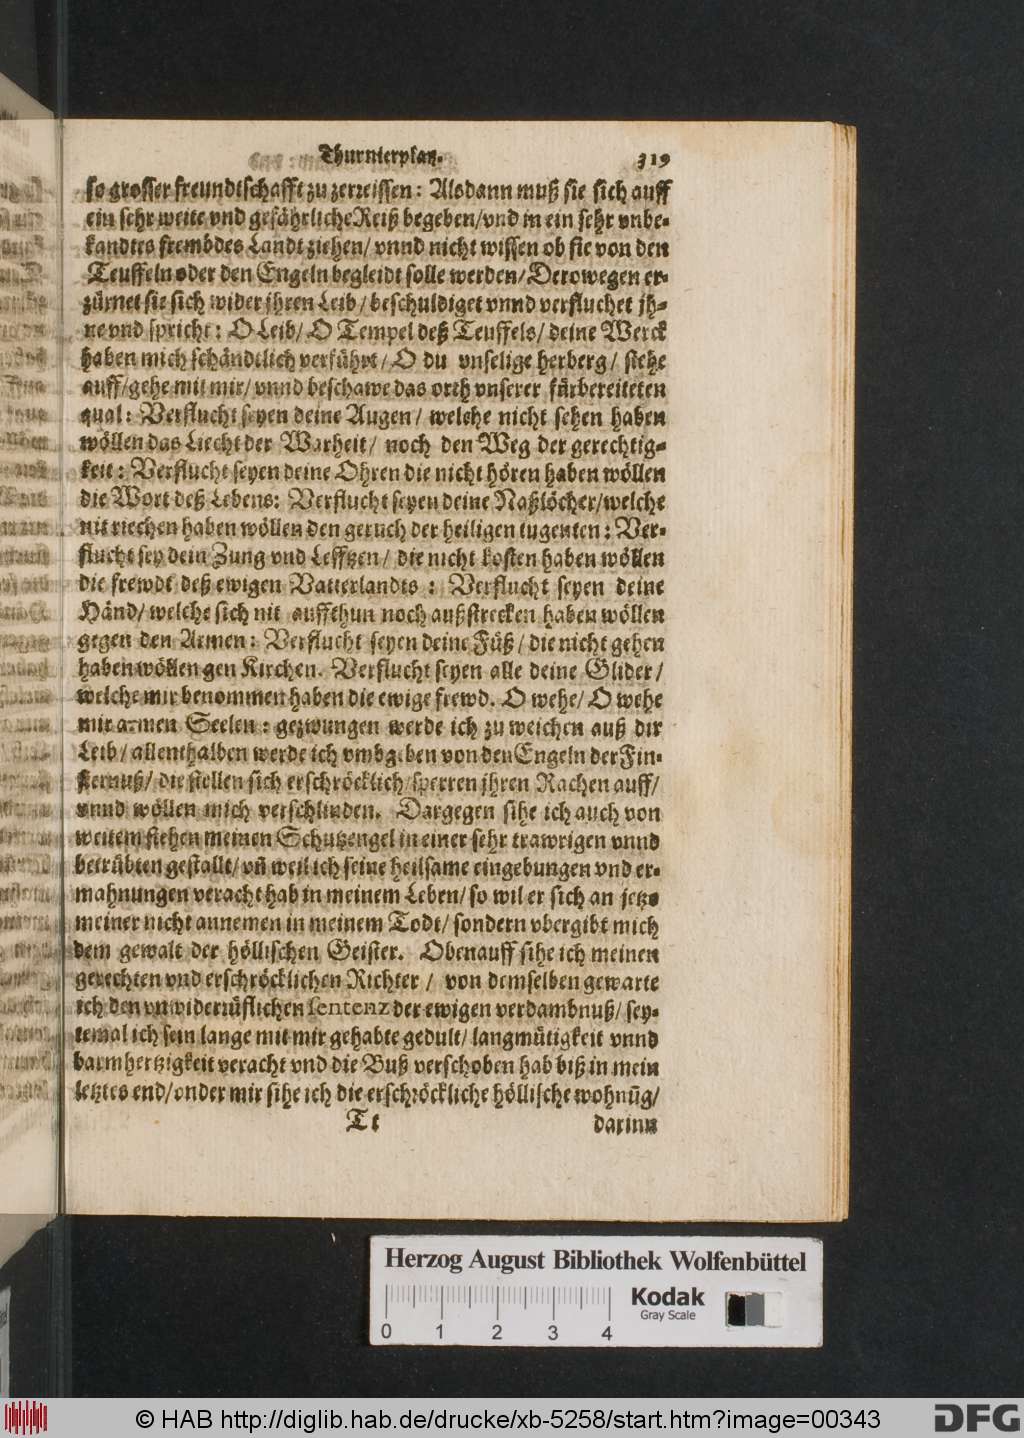 Thurnierplatz. 319
so grosser freundtschafft zu zerreissen: Alsdann muß sie sich auff
ein sehr weite vnd gefährliche Reiß begeben/vnd in ein sehr vnbe-
kandtes frembdes Landt ziehen/ vnnd nicht wissen ob sie von den
Teuffeln oder den Engeln begleidt solle werden/ Derowegen er-
zürnet sie sich wider jhren Leib/ beschuldiget vnnd verfluchet jh-
ne vnd spricht: O Leib/ O Tempel deß Teuffels/ deine Werck
haben mich schändtlich verführt/ O du vnselige herberg/ stehe
auff/gehe mit mir/ vnnd beschawe das orth vnserer fürbereiteten
qual: Verflucht seyen deine Augen/ welche nicht sehen haben
wöllen das Liecht der Warheit/ noch den Weg der gerechtig-
keit: Verflucht seyen deine Ohren die nicht hören haben wöllen
die Wort deß Lebens: Verflucht seyen deine Naßlöcher/welche
nit riechen haben wöllen den geruch der heiligen tugenten: Ver-
flucht sey dein Zung vnd Lefftzen/ die nicht kosten haben wöllen
die frewdt deß ewigen Vatterlandts: Verflucht seyen deine
Händ/ welche sich nit auffthun noch außstrecken haben wöllen
gegen den Armen: Verflucht seyen deine Füß/ die nicht gehen
haben wöllen gen Kirchen. Verflucht seyen alle deine Glider/
welche mir benommen haben die ewige frewd. O wehe/ O wehe
mir armen Seelen: gezwungen werde ich zu weichen auß dir
Leib/ allenthalben werde ich vmbgeben von den Engeln der Fin-
sternuß/ die stellen sich erschröcklich/sperren jhren Rachen auff/
vnnd wöllen mich verschlinden. Dargegen sihe ich auch von
weitem stehen meinen Schutzengel in einer sehr trawrigen vnnd
betrübten gestallt/ vñ weil ich seine heilsame eingebungen vnd er-
mahnungen veracht hab in meinem Leben/ so wil er sich an jetzo
meiner nicht annemen in meinem Todt/ sondern vbergibt mich
dem gewalt der höllischen Geister. Obenauff sihe ich meinen
gerechten vnd erschröcklichen Richter/ von demselben gewarte
ich den vnwiderrüfflichen sentenz der ewigen verdambnuß/ sey-
temal ich sein lange mit mir gehabte gedult/ langmütigkeit vnnd
barmhertzigkeit veracht vnd die Buß verschoben hab biß in mein
letztes end/vnder mir sihe ich die erschröckliche höllische wohnūg/
Tt darinn
Herzog August Bibliothek Wolfenbüttel
Kodak
Gray Scale
0 1 2 3 4
© HAB http://diglib.hab.de/drucke/xb-5258/start.htm?image=00343
DFG